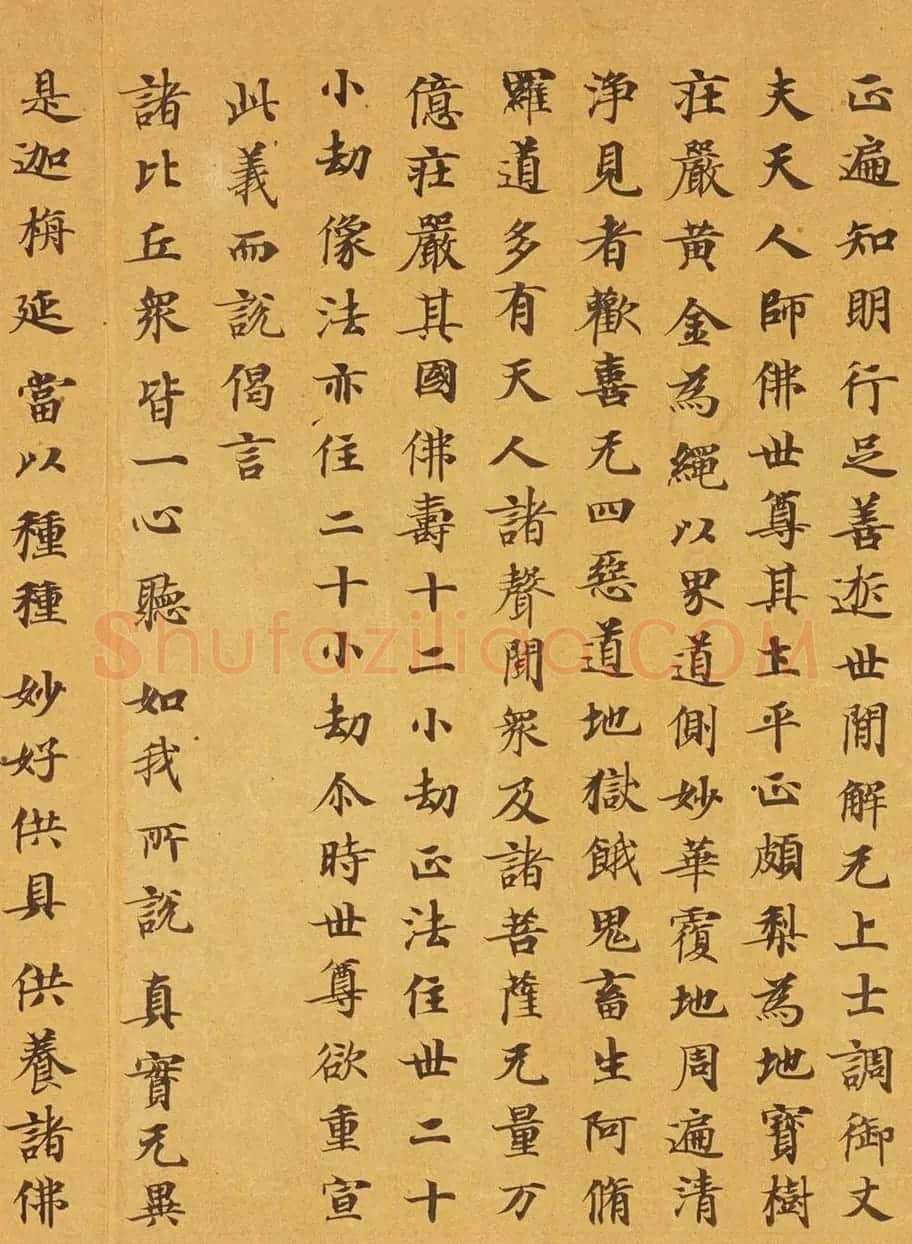 正遍知明行足善逝世間解无上士調御丈
夫天人師佛世尊其土平正頗梨為地寶樹
莊嚴黃金為繩以界道側妙華覆地周遍清
淨見者歡喜无四惡道地獄餓鬼畜生阿脩
羅道多有天人諸聲聞衆及諸菩薩无量万
億莊嚴其國佛壽十二小劫正法住世二十
小劫像法亦住二十小劫尒時世尊欲重宣
此義而說偈言
諸比丘衆皆一心聽如我所說真實无異
是迦栴延當以種種妙好供具供養諸佛
Shufaziliao.COM